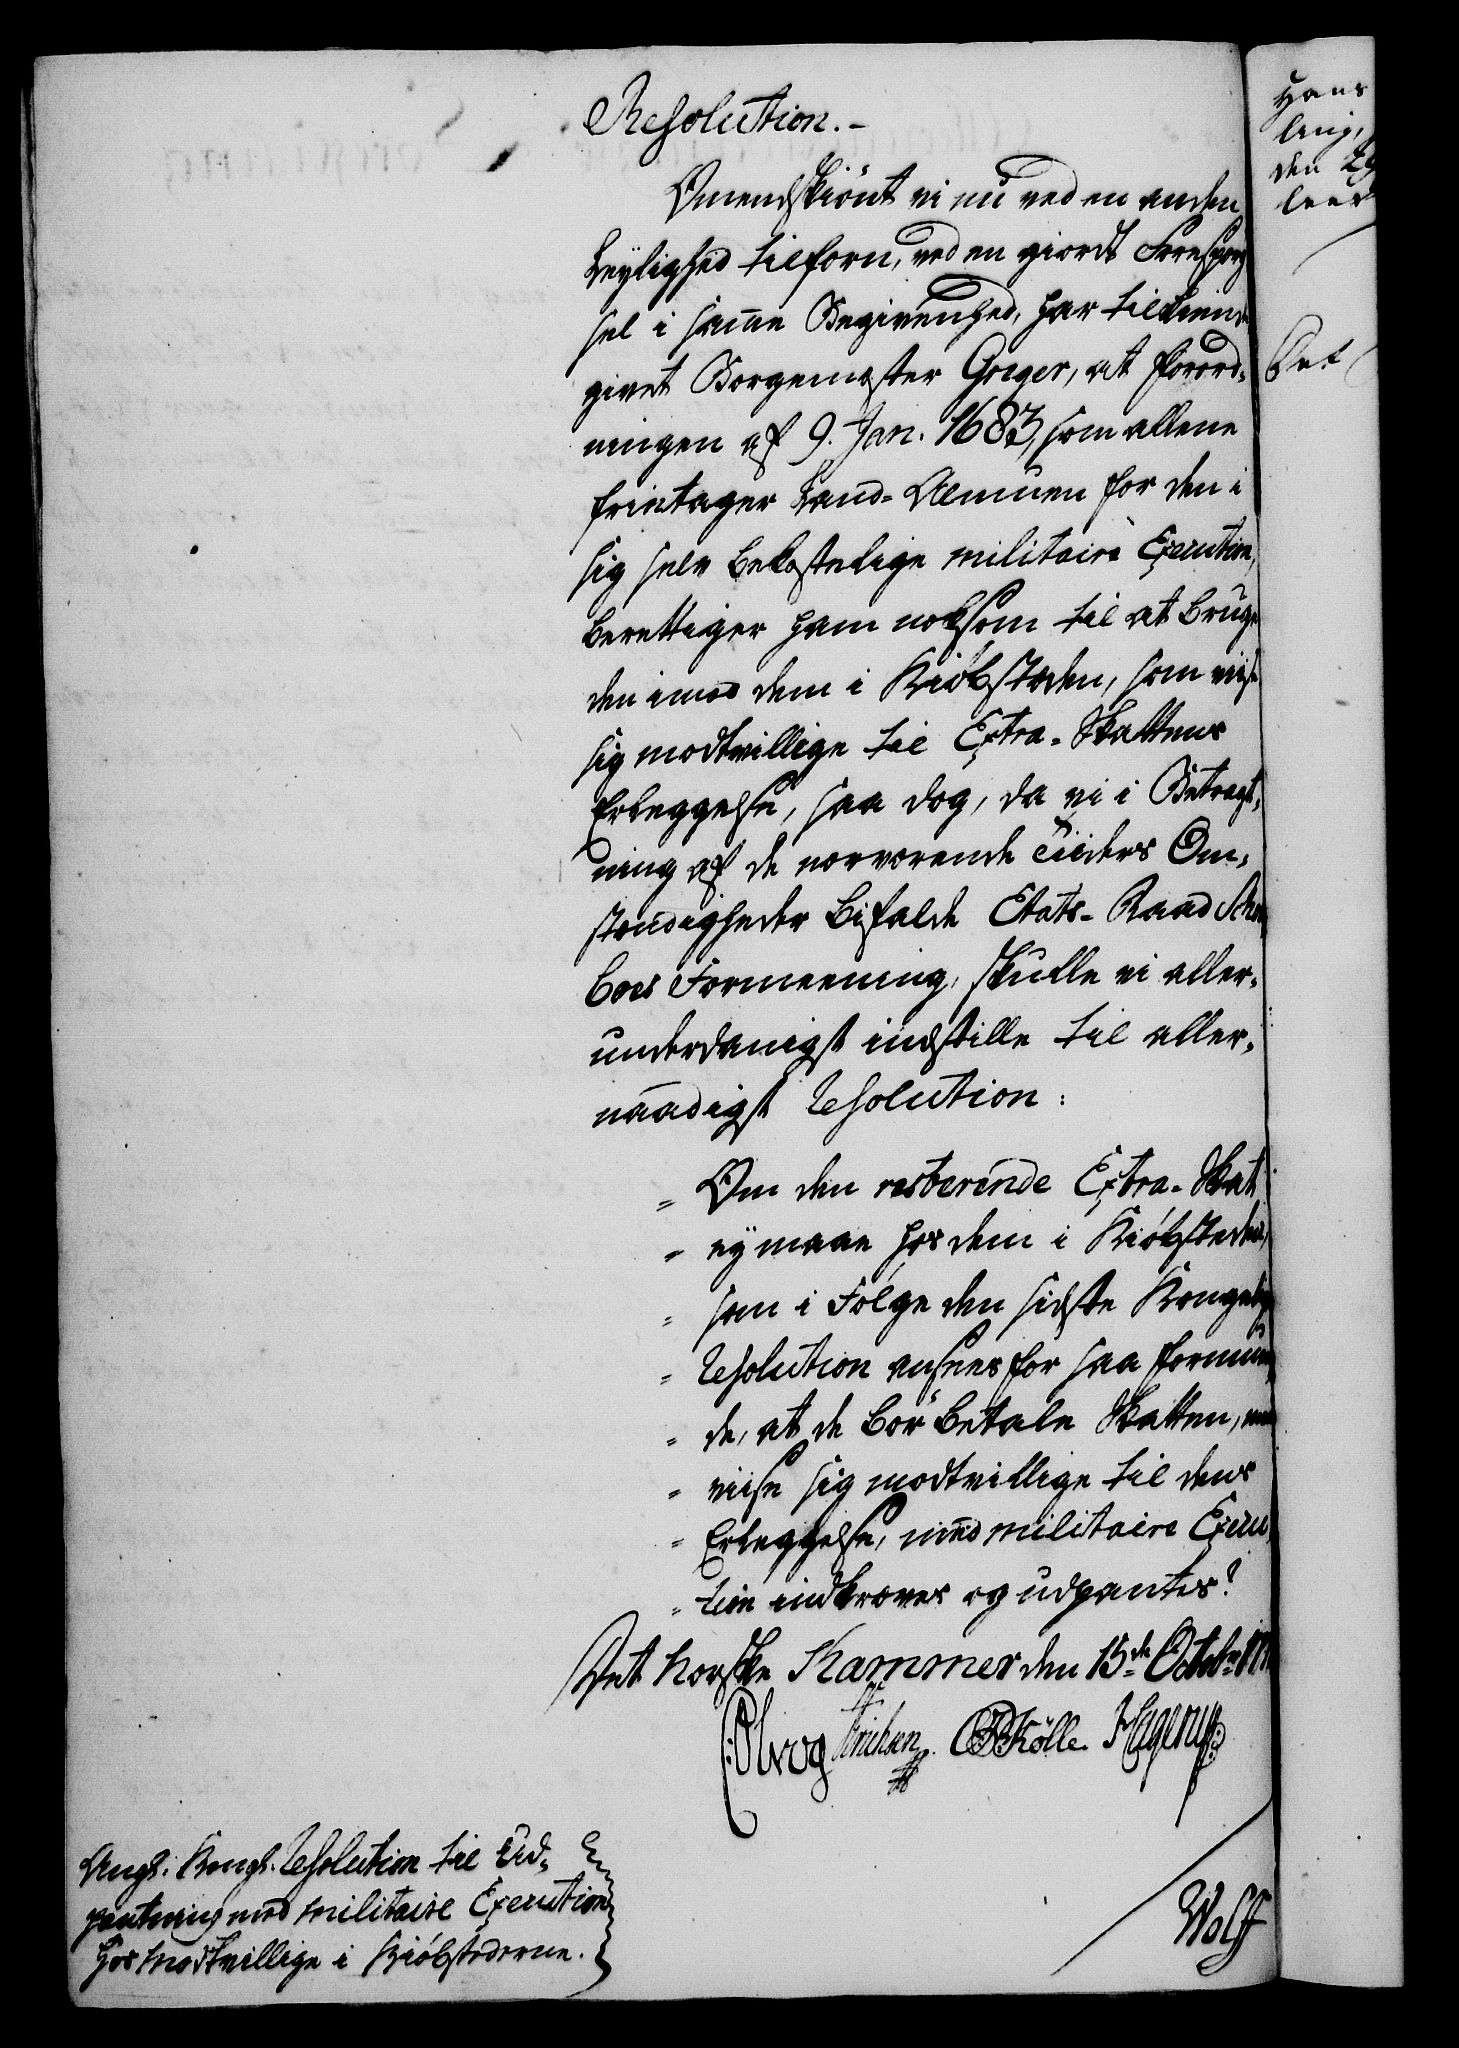 Resolution.-
Omendskiönt vi nu ved en anden
Leylighed tilforn, ved en giordt Forespørg
sel i samme Begivenhed, har tilkiende
givet Borgemester Greger, at Forord-
ningen af 9. Jan. 1683, som allene
fritager Land-Almuen for den i
sig selv bekostelige militaire Execution,
berettiger ham noksom til at bruge
den imod dem i Kiöbstæden, som viise
sig modtvillige til Extra-Skattens
Erleggelse, saa dog, da vi i Betragt-
ning af de nærværende Tiiders Om-
stændigheder bifalde Etats-Raad
Formeening, skulle vi aller-
underdanigst indstille til aller-
naadigst Resolution:
= Om den resterende Extra-Skat
= ey maae hos dem i Kiöbstæderne,
= som i Fölge den sidste Kongelige
= Resolution ansees for saa formuen-
= de, at de bör betale Skatten, men
= viise sig modtvillige til dens
= Erleggelse, med militaire Execu
= tion indkræves og udpantes?
Det Norske Kammer den 15de Octobr
Erichsen. Kölle. Hagerup
Wolff
Angl: Kongl. Resolution til Ud-
pantning med militaire Execution
hos modtvillige i Kiöbstæderne.
Hans
den 29
Det